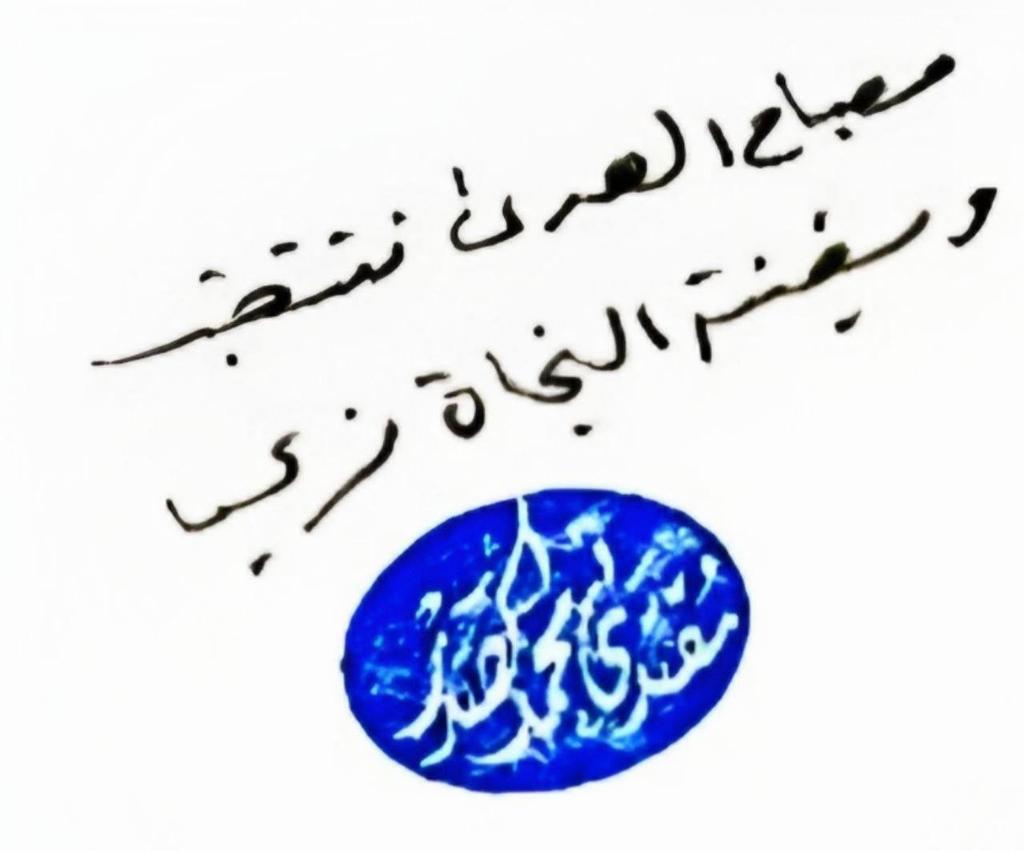 مصباح الهدى ننتخب
وسفينة النجاة نرى
مقتدى محمد الصدر